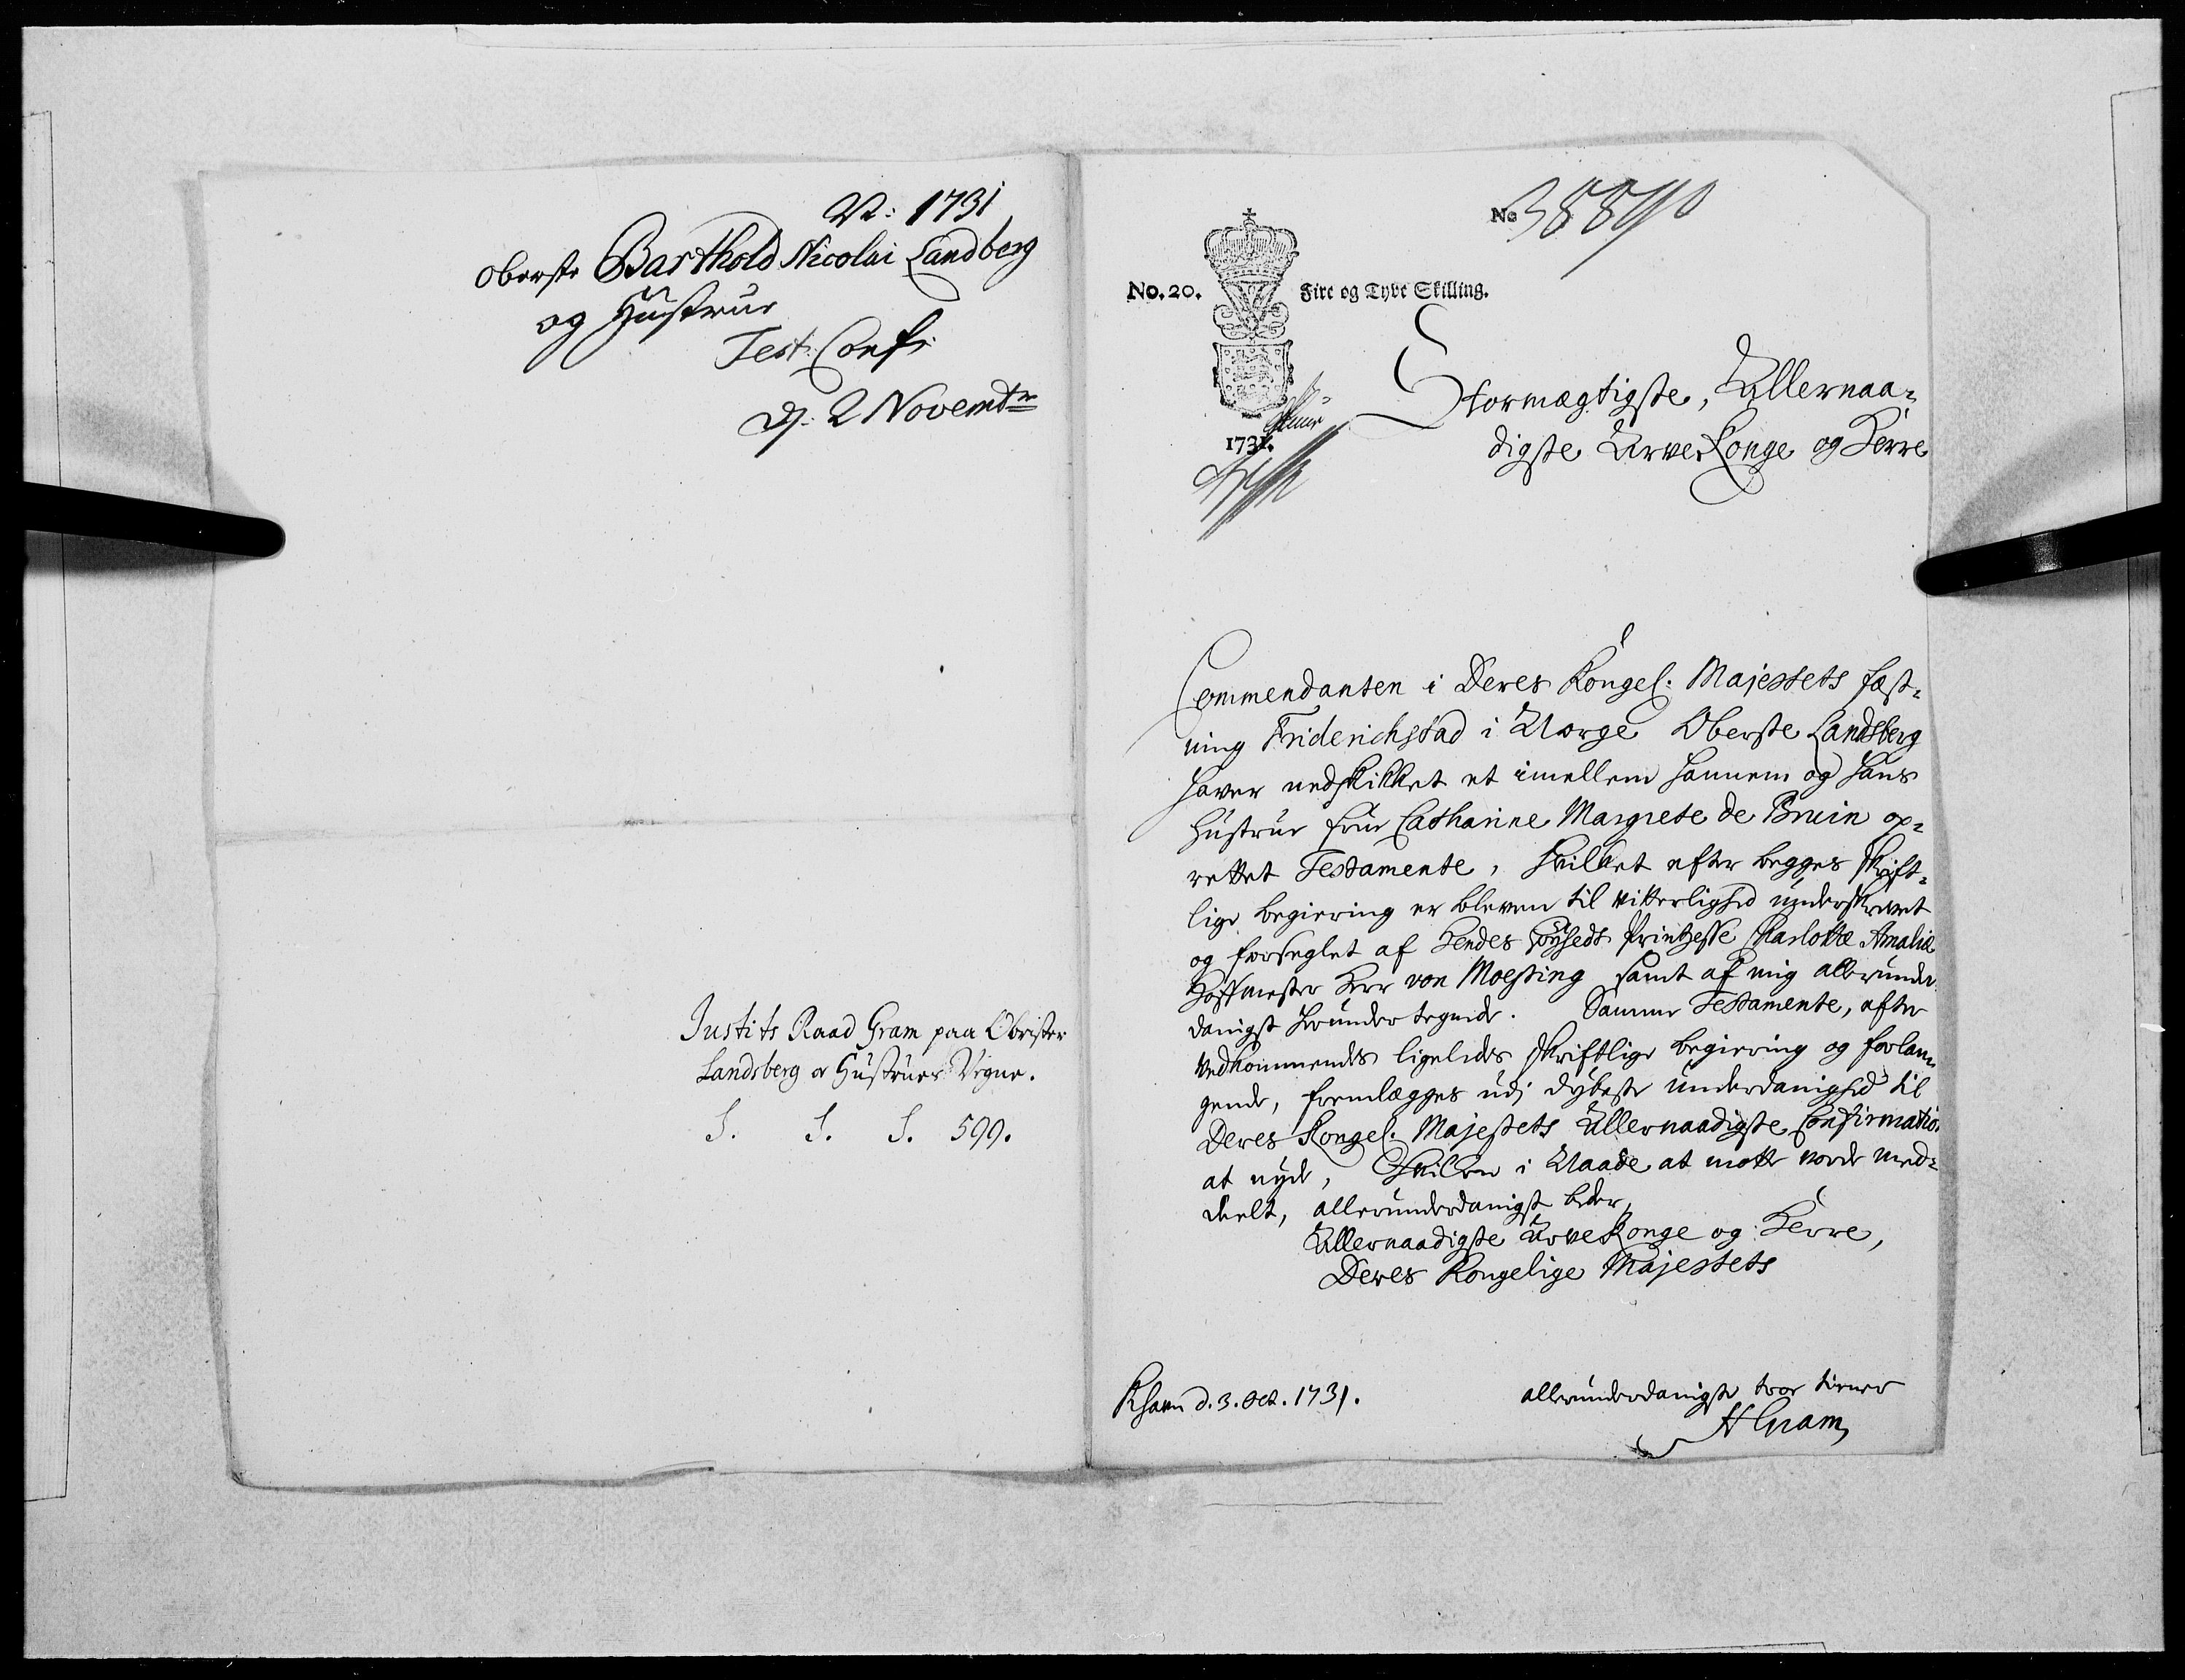 1731
Oberste Barthold Nicolai Landsberg
og Hustrue
Test: Conf:
D. 2 Novembr
Justits Raad Gram paa Obrister
Landsberg & Hustrues Vegne.
S. S. S. 599.
No
No. 20. Fire og Tyve Skilling.
1731.
Stormægtigste, Allernaa-
digste Arve Konge og Herre
Commendanten i Deres Kongel: Majestets fæst-
ning Friderichstad i Norge Oberste Landsberg
haver nedskikket et imellem hannem og hans
Hustrue frue Catharine Margrete de Bruin op-
rettet Testamente, hvilket efter begges skrift-
lige begiering er bleven til vitterlighed underskrevet
og forseglet af Hendes Høyhedts Printzesse Charlottæ Amaliæ
Hoffmester Herr von Moesting samt af mig allerunder-
danigst herunder tegnede. Samme Testamente, efter
vedkommendes ligeledes skriftlige begiering og forlan-
gende, fremlægges udj dybeste underdanighed til
Deres Kongel: Majestets Allernaadigste Confirmation
at nyde, Hvilken i Naade at motte vorde med-
deelt, allerunderdanigst beder,
Allernaadigste Arve Konge og Herre,
Deres Kongelige Majestets
Khavn d. 3. Oct. 1731.
allerunderdanigste troe tiener
H Gram